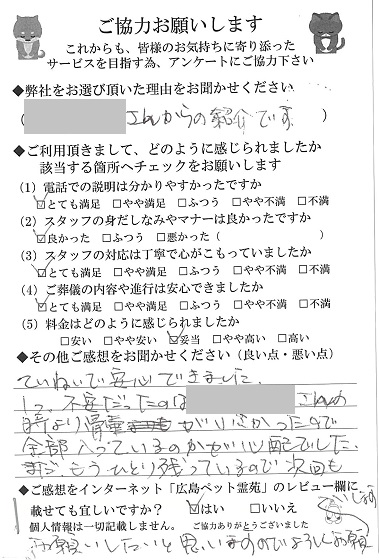 ご協力お願いします
これからも、皆様のお気持ちに寄り添った
サービスを目指す為、アンケートにご協力下さい
◆弊社をお選び頂いた理由をお聞かせください
( さんからの紹介です )
◆ご利用頂きまして、どのように感じられましたか
該当する箇所へチェックをお願いします
(1) 電話での説明は分かりやすかったですか
☑とても満足 □やや満足 □ふつう □やや不満 □不満
(2) スタッフの身だしなみやマナーは良かったですか
☑良かった □ふつう □悪かった ( )
(3) スタッフの対応は丁寧で心がこもっていましたか
☑とても満足 □やや満足 □ふつう □やや不満 □不満
(4) ご葬儀の内容や進行は安心できましたか
☑とても満足 □やや満足 □ふつう □やや不満 □不満
(5) 料金はどのように感じられましたか
□安い □やや安い ☑妥当 □やや高い □高い
◆その他ご感想をお聞かせください (良い点・悪い点)
ていねいで安心できました。
1つ、不安だったのは さんの
時より骨 が 小さかったので
全部入っているのかが心配でした。
まだ、もうひとり残っているので次回も
◆ご感想をインターネット「広島ペット霊苑」のレビュー欄に
載せても宜しいですか? ☑はい □いいえ
個人情報は一切記載しません。 ご協力ありがとうございました
お願いしたいと思いますのでよろしくお願
いします